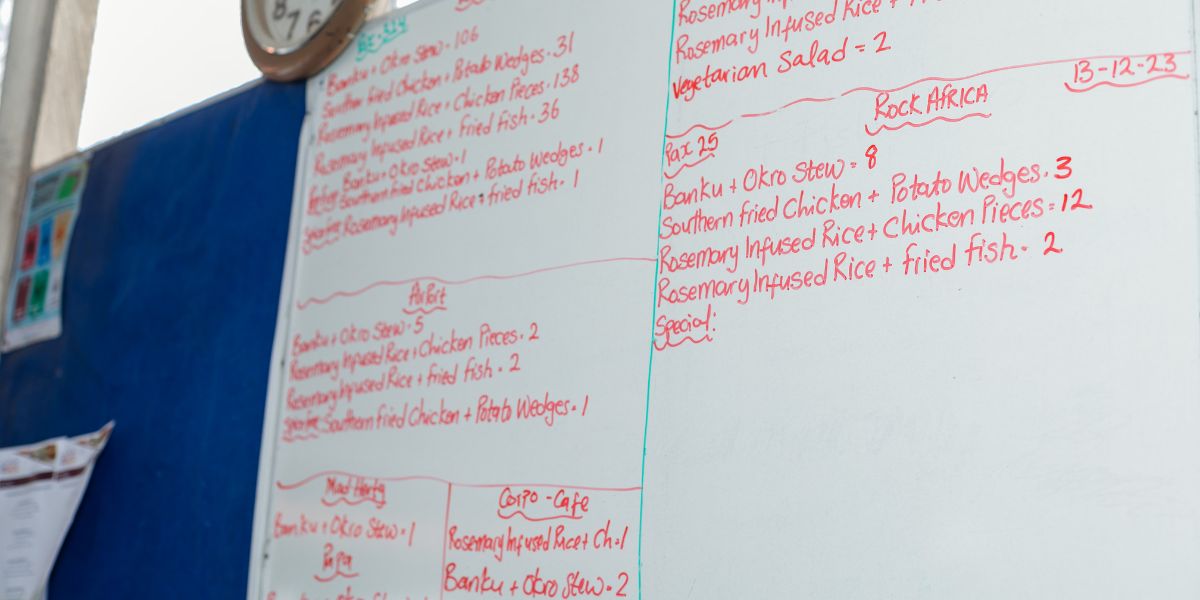 8 7 6
Banku + Okro Stew - 106
Southern fried Chicken + Potato Wedges - 31
Rosemary Infused Rice + Chicken Pieces - 138
Rosemary Infused Rice + fried fish - 36
Banku + Okro Stew - 1
Southern fried Chicken + Potato Wedges - 1
Rosemary Infused Rice + fried fish - 1
AirPort
Banku + Okro Stew - 5
Rosemary Infused Rice + Chicken Pieces - 2
Rosemary Infused Rice + fried fish - 2
Southern fried Chicken + Potato Wedges - 1
Banku + Okro Stew - 1
Papa
Corpo - Cafe
Rosemary Infused Rice + Ch - 1
Banku + Okro Stew - 2
Rosemary
Rosemary Infused Rice +
Vegetarian Salad = 2
13-12-23
ROCK AFRICA
Pax 25
Banku + Okro Stew = 8
Southern fried Chicken + Potato Wedges - 3
Rosemary Infused Rice + Chicken Pieces = 12
Rosemary Infused Rice + fried fish - 2
Special: